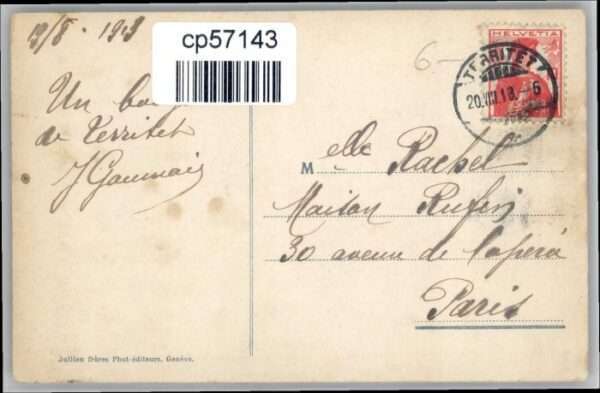 cp57143
19/8 - 1913
Un bon
de Territet
HELVETIA
TERRITET
20.VIII.13. - 6
6 -
Melle Rachel
Maison
30 avenue de l'opéra
Paris
Jullien frères Phot-éditeurs, Genève.